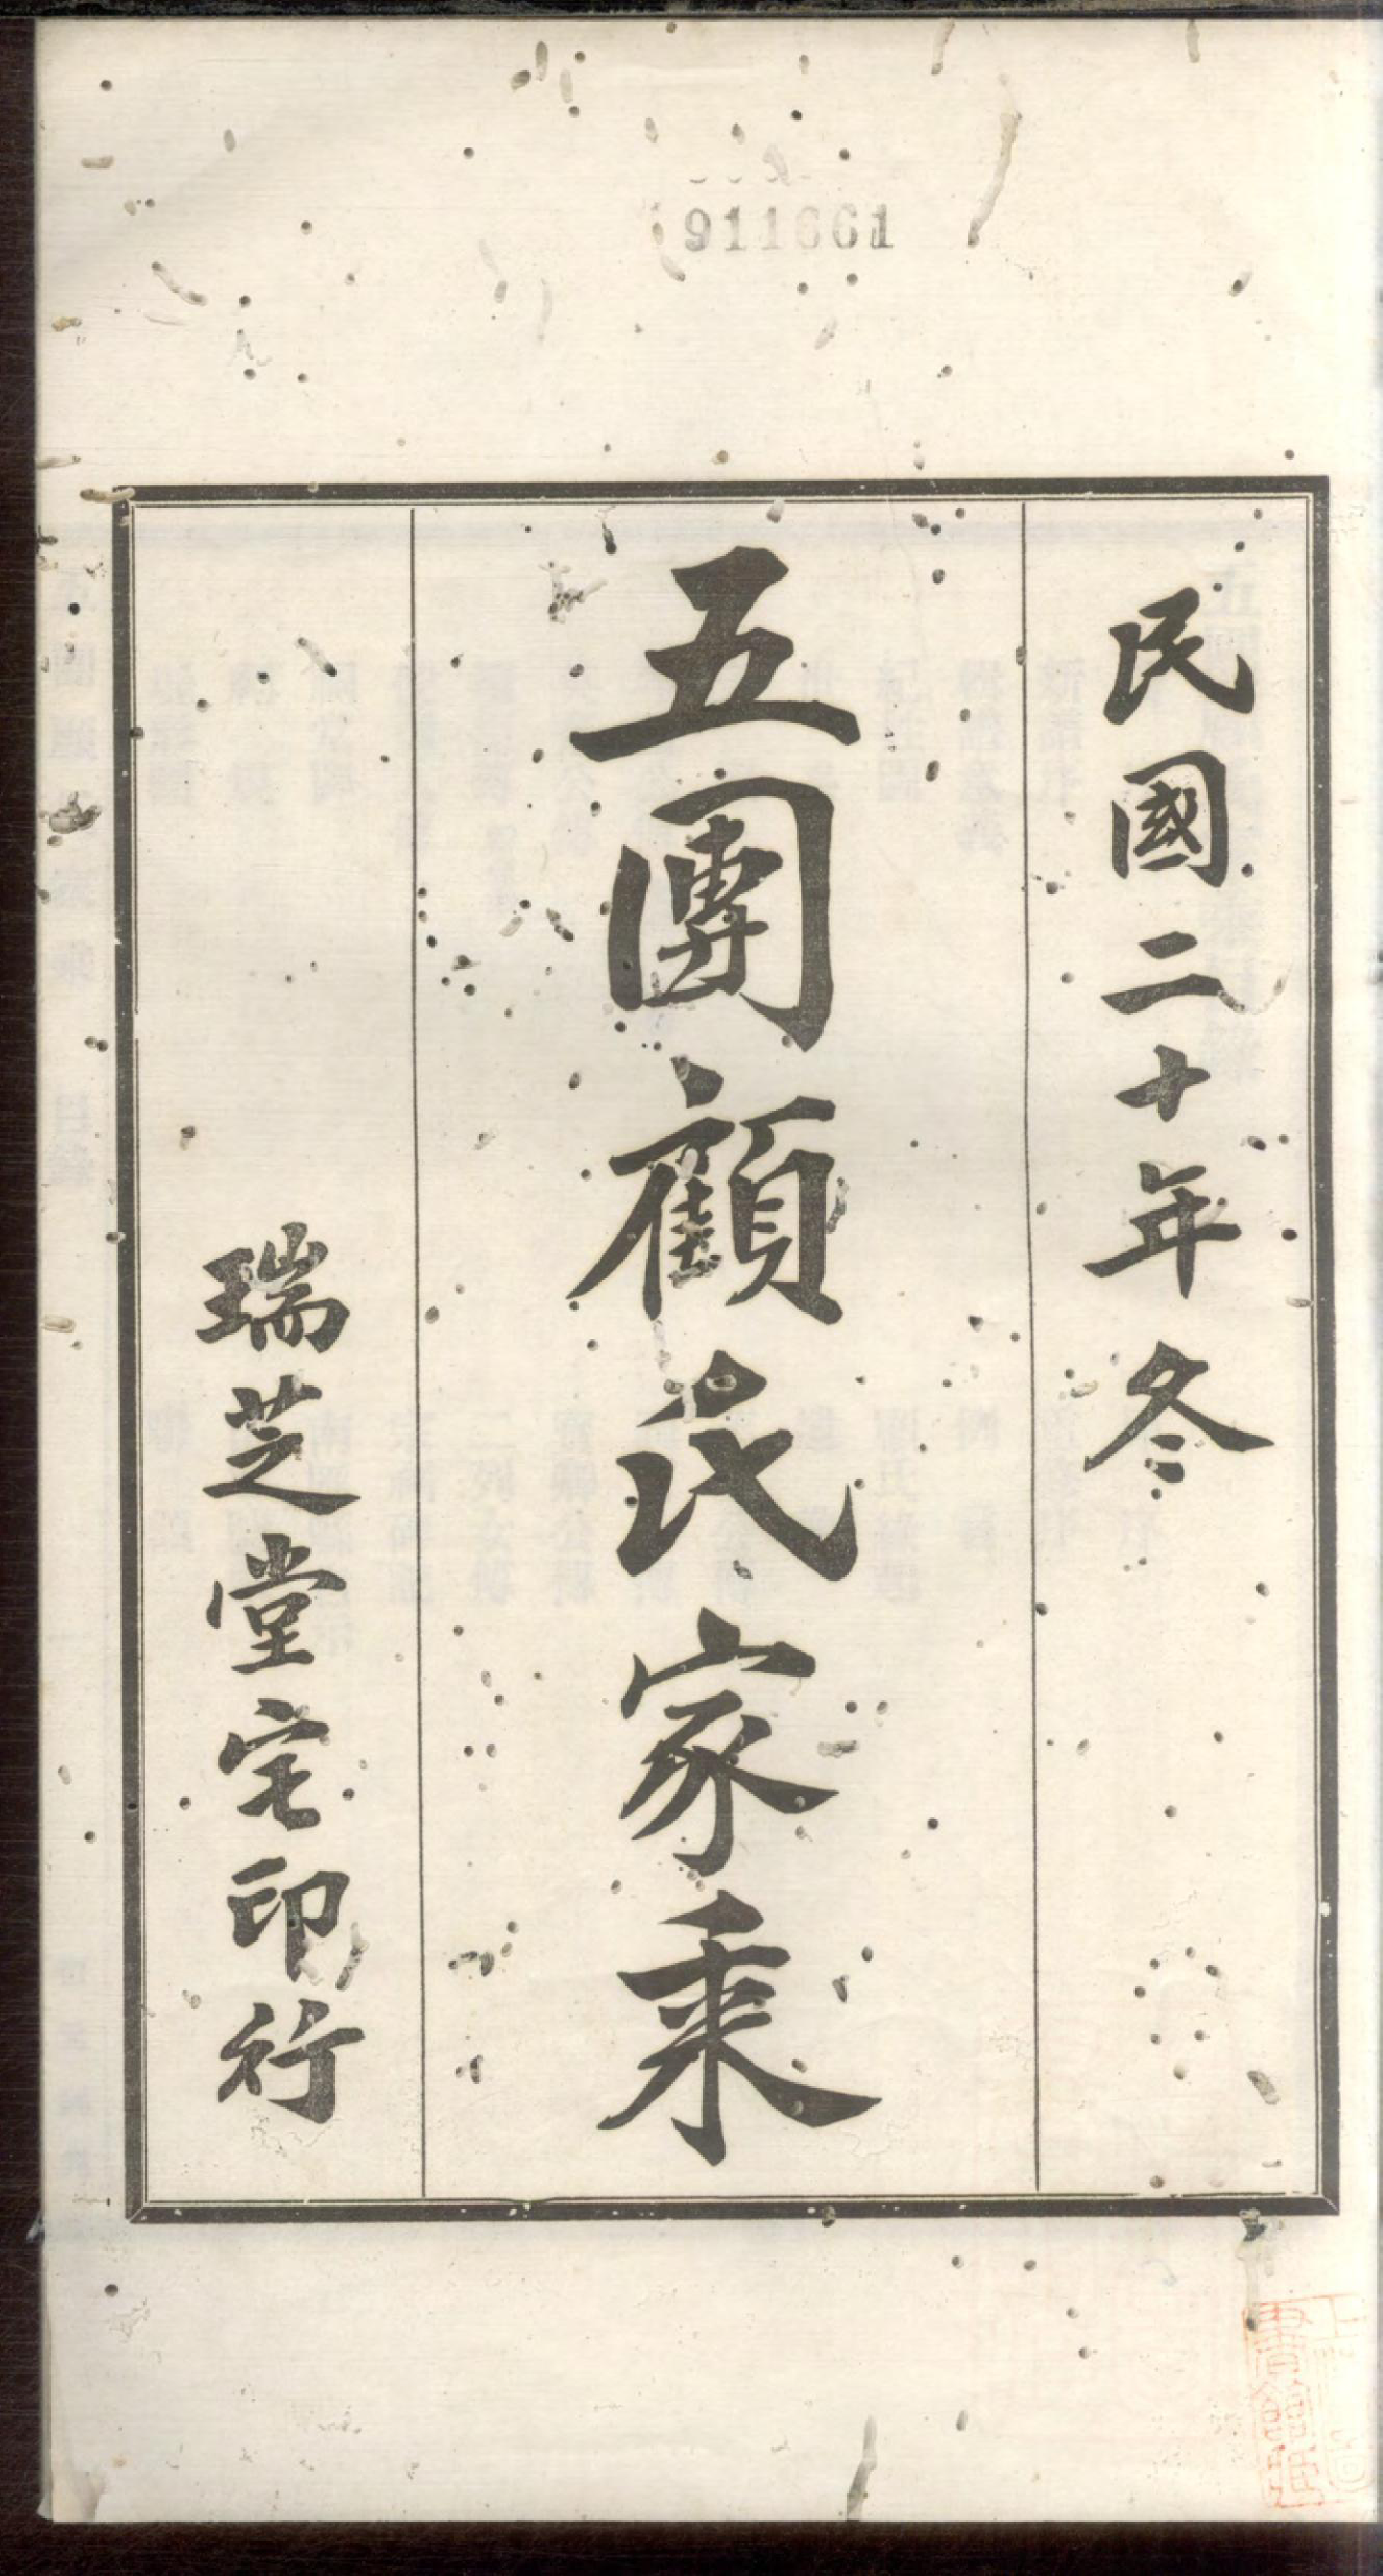 911661
民國二十年冬
五團顧氏家乘
瑞芝堂宅印行